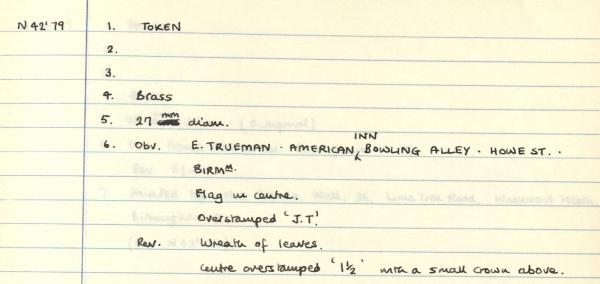 N 42' 79 1. TOKEN
2.
3.
4. Brass
5. 27 mm diam.
6. Obv. E. TRUEMAN · AMERICAN INN BOWLING ALLEY · HOWE ST. ·
BIRMM.
Flag in centre.
Overstamped 'J.T.'
Rev. Wreath of leaves.
Centre overstamped '1½' with a small crown above.